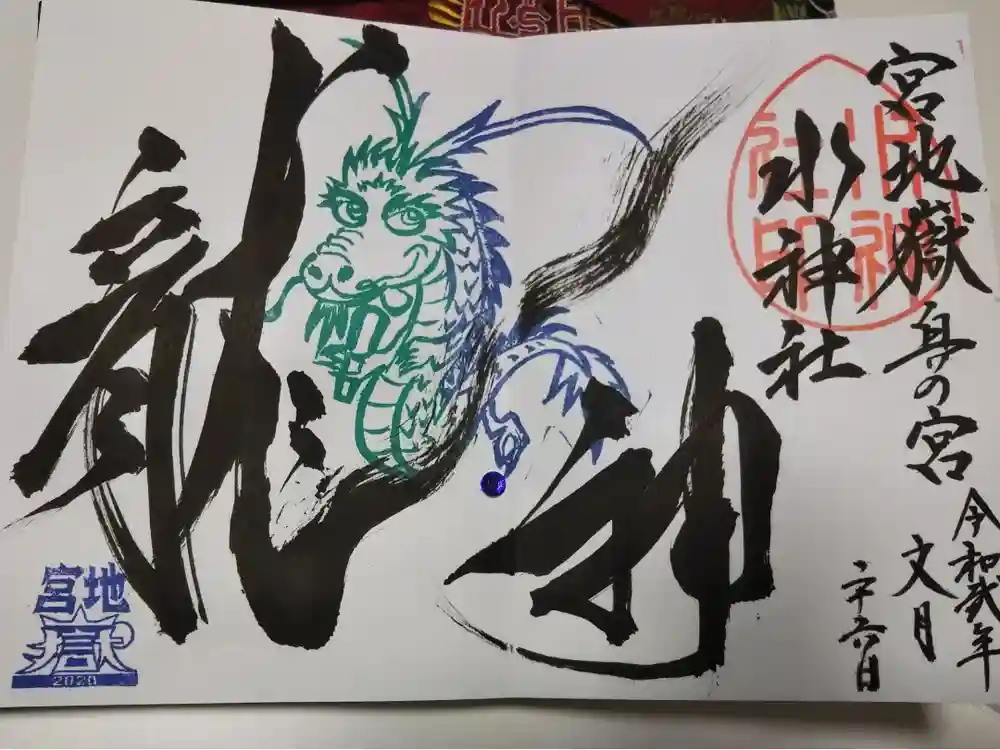 宮地嶽奥の宮
水神社
令和弐年
文月
二十六日
龍神
宮地
嶽
2020